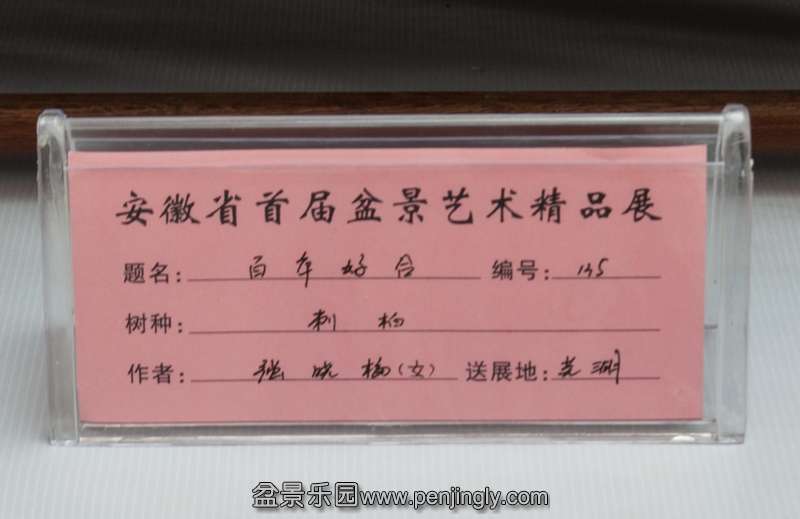 安徽省首届盆景艺术精品展
题名: 百年好合 编号: 135
树种: 刺柏
作者: 强晓梅(女) 送展地: 芜湖
盆景乐园www.penjingly.com